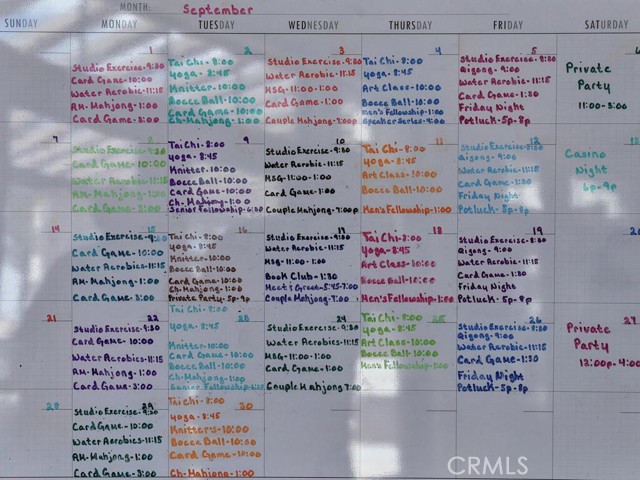 MONTH: September
SUNDAY MONDAY TUESDAY WEDNESDAY THURSDAY FRIDAY SATURDAY
1
Studio Exercise-9:30
Card Game-10:00
Water Aerobic-11:15
AM-Mahjong-1:00
Card Game-3:00
2
Tai Chi-8:00
Yoga-8:45
Knitter-10:00
Bocce Ball-10:00
Card Game 10:00
Ch-Mahjong-1:00
3
Studio Exercise-9:30
Water Aerobic-11:15
MSG-11:00-1:00
Card Game-1:00
Couple Mahjong-7:00p
4
Tai Chi-8:00
Yoga-8:45
Art Class-10:00
Bocce Ball-10:00
Men's Fellowship-1:00
Speaker Series-4:00
5
Studio Exercise-9:30
Qigong-9:00
Water Aerobic-11:15
Card Game-1:30
Friday Night
Potluck-5p-8p
6
Private
Party
11:00-3:00
7
8
Studio Exercise-9:30
Card Game-10:00
Water Aerobic-11:15
AM-Mahjong-1:00
Card Game-3:00
9
Tai Chi-8:00
Yoga-8:45
Knitter-10:00
Bocce Ball-10:00
Card Game-10:00
Ch-Mahjong-1:00
Senior Fellowship-6:00
10
Studio Exercise-9:30
Water Aerobic-11:15
MSG-11:00-1:00
Card Game-1:00
Couple Mahjong-7:00p
11
Tai Chi-8:00
Yoga-8:45
Art Class-10:00
Bocce Ball-10:00
Men's Fellowship-1:00
12
Studio Exercise-9:30
Qigong-9:00
Water Aerobic-11:15
Card Game-1:30
Friday Night
Potluck-5p-8p
13
Casino
Night
6p-9p
14
15
Studio Exercise-9:30
Card Game-10:00
Water Aerobic-11:15
AM-Mahjong-1:00
Card Game-3:00
16
Tai Chi-8:00
Yoga-8:45
Knitter-10:00
Bocce Ball-10:00
Card Game-10:00
Ch-Mahjong-1:00
Private Party-5p-9p
Studio Exercise-9:30
Water Aerobic-11:15
MSG-11:00-1:00
Book Club-1:30
Meet & Greet-5:45-7:00
Couple Mahjong-7:00
18
Tai Chi-8:00
Yoga-8:45
Art Class-10:00
Bocce Ball-10:00
Men's Fellowship-1:00
19
Studio Exercise-9:30
Qigong-9:00
Water Aerobic-11:15
Card Game-1:30
Friday Night
Potluck-5p-8p
20
21
22
Studio Exercise-9:30
Card Game-10:00
Water Aerobic-11:15
AM-Mahjong-1:00
Card Game-3:00
23
Tai Chi-8:00
Yoga-8:45
Knitter-10:00
Card Game-10:00
Bocce Ball-10:00
Ch-Mahjong-1:00
Senior Fellowship
24
Studio Exercise-9:30
Water Aerobic-11:15
MSG-11:00-1:00
Card Game-1:00
Couple Mahjong 7:00
25
Tai Chi-8:00
Yoga-8:45
Art Class-10:00
Bocce Ball-10:00
Men's Fellowship-1:00
26
Studio Exercise-9:30
Qigong-9:00
Water Aerobic-11:15
Card Game-1:30
Friday Night
Potluck-5p-8p
27
Private
Party
12:00p-4:00
28
29
Studio Exercise-9:30
Card Game-10:00
Water Aerobics-11:15
AM-Mahjong-1:00
Card Game-3:00
30
Tai Chi-8:00
Yoga-8:45
Knitter's-10:00
Bocce Ball-10:00
Card Game-10:00
Ch-Mahjong-1:00
CRMLS